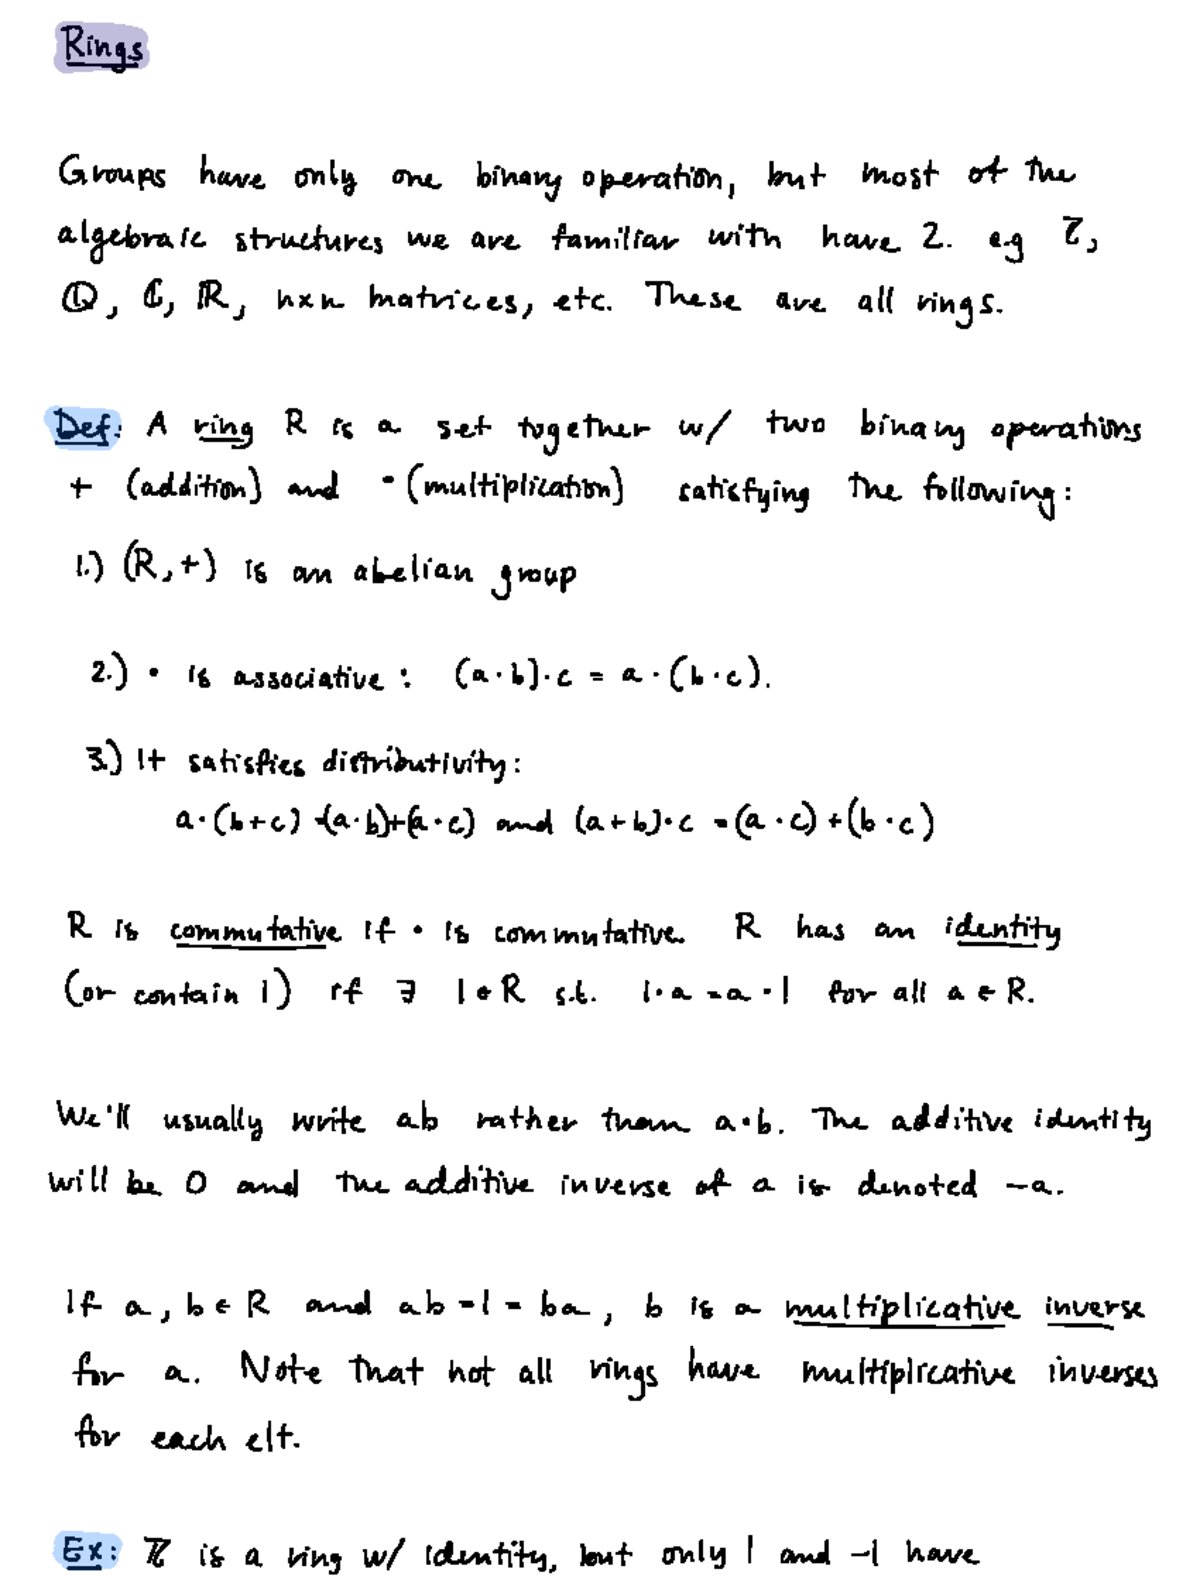 Rings
Groups have only one binary operation, but most of the
algebraic structures we are familiar with have 2. e.g ℤ,
ℚ, ℂ, ℝ, n×n matrices, etc. These are all rings.
Def: A ring R is a set together w/ two binary operations
+ (addition) and · (multiplication) satisfying the following:
1.) (R,+) is an abelian group
2.) · is associative: (a·b)·c = a·(b·c).
3.) It satisfies distributivity:
a·(b+c) = (a·b)+(a·c) and (a+b)·c = (a·c)+(b·c)
R is commutative if · is commutative. R has an identity
(or contain 1) if ∃ 1∈R s.t. 1·a = a·1 for all a ∈ R.
We'll usually write ab rather than a·b. The additive identity
will be 0 and the additive inverse of a is denoted -a.
If a, b ∈ R and ab = 1 = ba, b is a multiplicative inverse
for a. Note that not all rings have multiplicative inverses
for each elt.
Ex: ℤ is a ring w/ identity, but only 1 and -1 have